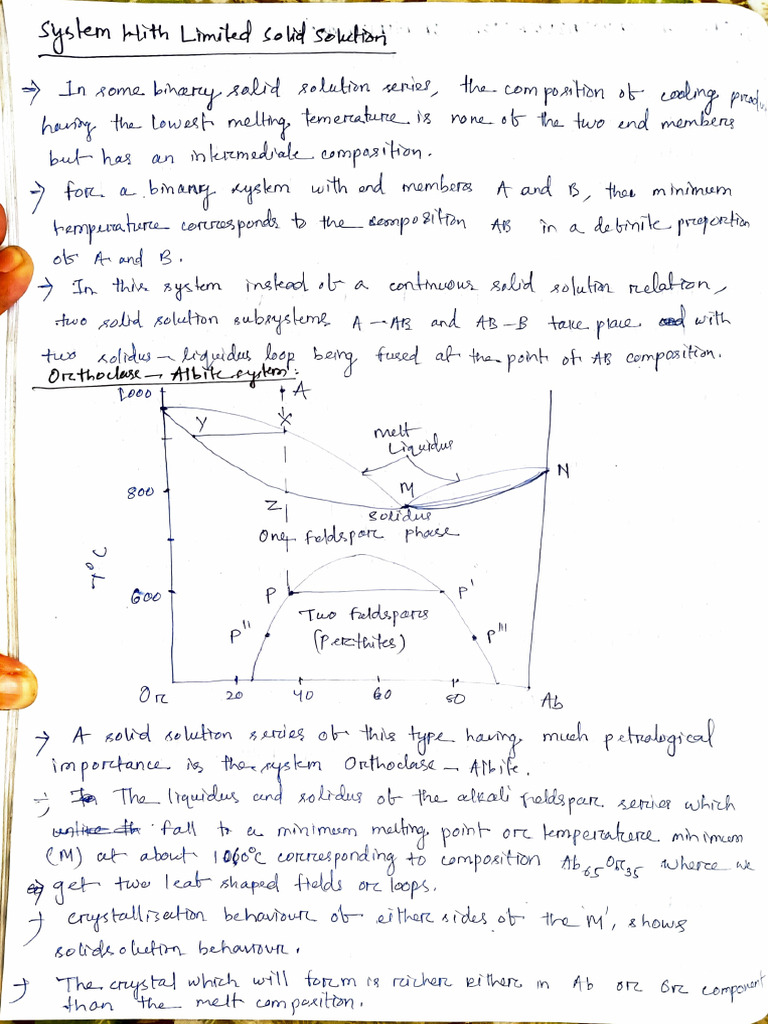 System With Limited Solid Solution
→ In some binary solid solution series, the composition of cooling produ
having the lowest melting temerature is none of the two end members
but has an intermediate composition.
→ for a binary system with end members A and B, the minimum
temperature corresponds to the composition AB in a definite proportion
of A and B.
→ In this system instead of a continuous solid solution relation,
two solid solution subsystems A-AB and AB-B take place with
two solidus-liquidus loop being fused at the point of AB composition.
Orthoclase - Albite system:
1000
A
Y
X
melt
Liquidus
N
800
M
Z
Solidus
One feldspar phase
T°C
600
P
P'
Two feldspars
P"
(Perthites)
P'''
Or
20
40
60
80
Ab
→ A solid solution series of this type having much petrological
importance is the system Orthoclase - Albite.
→ The liquidus and solidus of the alkali feldspar series which
fall to a minimum melting point or temperature minimum
(M) at about 1060°C corresponding to composition Ab65Or35 where we
get two leaf shaped fields or loops.
→ crystallisation behaviour of either sides of the 'M', shows
solidsolution behaviour.
→ The crystal which will form is richer either in Ab or Or component
than the melt composition.